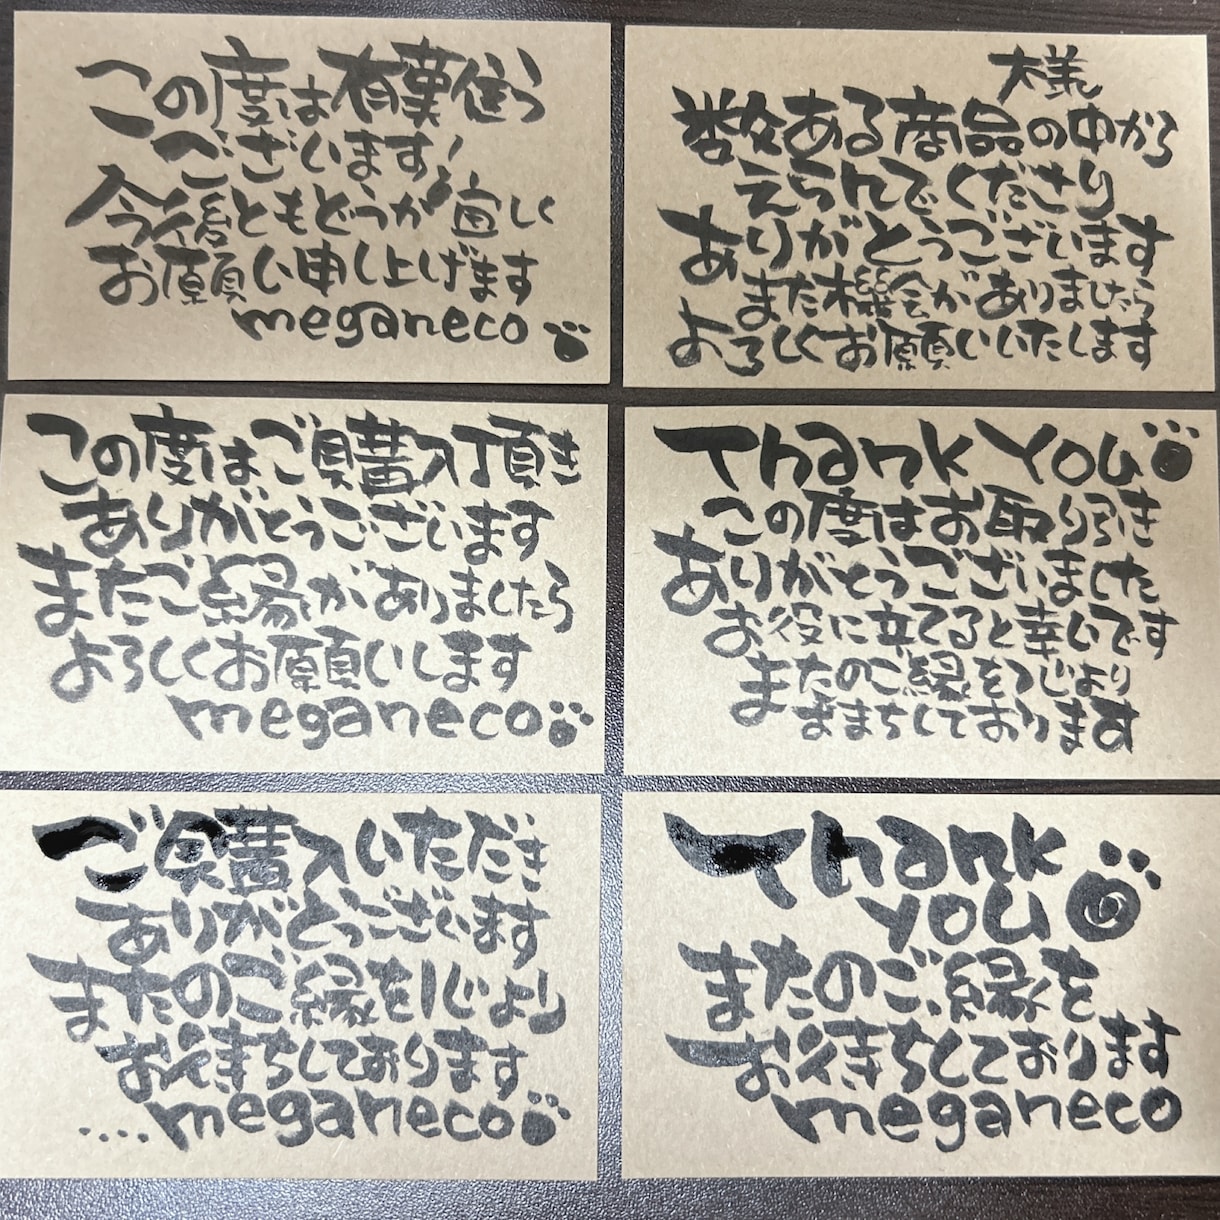 この度は有難う
ございます!
今後ともどうか宜しく
お願い申し上げます
meganeco
様
数ある商品の中から
えらんでくださり
ありがとうございます
また機会がありましたら
よろしくお願いいたします
この度はご購入頂き
ありがとうございます
またご縁がありましたら
よろしくお願いします
meganeco
Thank You
この度はお取り引き
ありがとうございました
お役に立てると幸いです
またのご縁を心より
おまちしております
ご購入いただき
ありがとうございます
またのご縁を心より
お待ちしております
....meganeco
Thank
you
またのご縁を
お待ちしております
meganeco